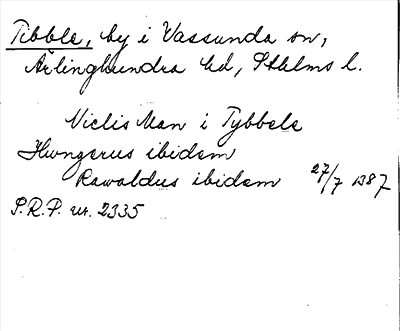 Tibble, by i Vassunda sn,
Ärlinghundra hd, Sthlms l.
Niclis Man i Tybbele
Hwngerus ibidem
Rawaldus ibidem 27/7 1387
S.R.P. nr. 2335